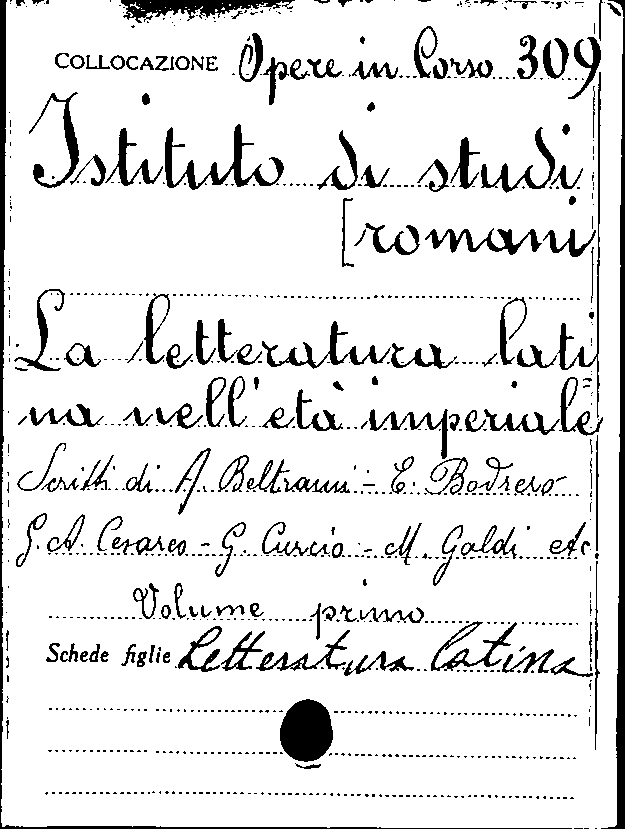 COLLOCAZIONE Opere in Corso 309
Istituto di studi
[romani
La letteratura lati
na nell'età imperiale
Scritti di A. Beltrami - E. Bodrero
G. A. Cesareo - G. Curcio - M. Galdi etc.
Volume primo
Schede figlie Letteratura latina